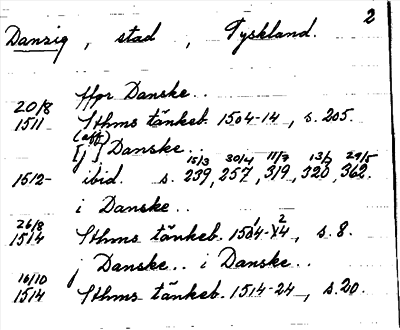 2
Danzig, stad, Tyskland.
ffgr Danske..
20/8
1511 Sthms tänkeb. 1504-14, s. 205.
(aff)
[j] Danske..
15/3 30/4 11/7 13/7 29/5
1512- ibid. s. 239, 257, 319, 320, 362.
i Danske..
26/8
1514 Sthms tänkeb. 1514-24, s. 8.
j Danske.. i Danske..
16/10
1514 Sthms tänkeb. 1514-24, s. 20.